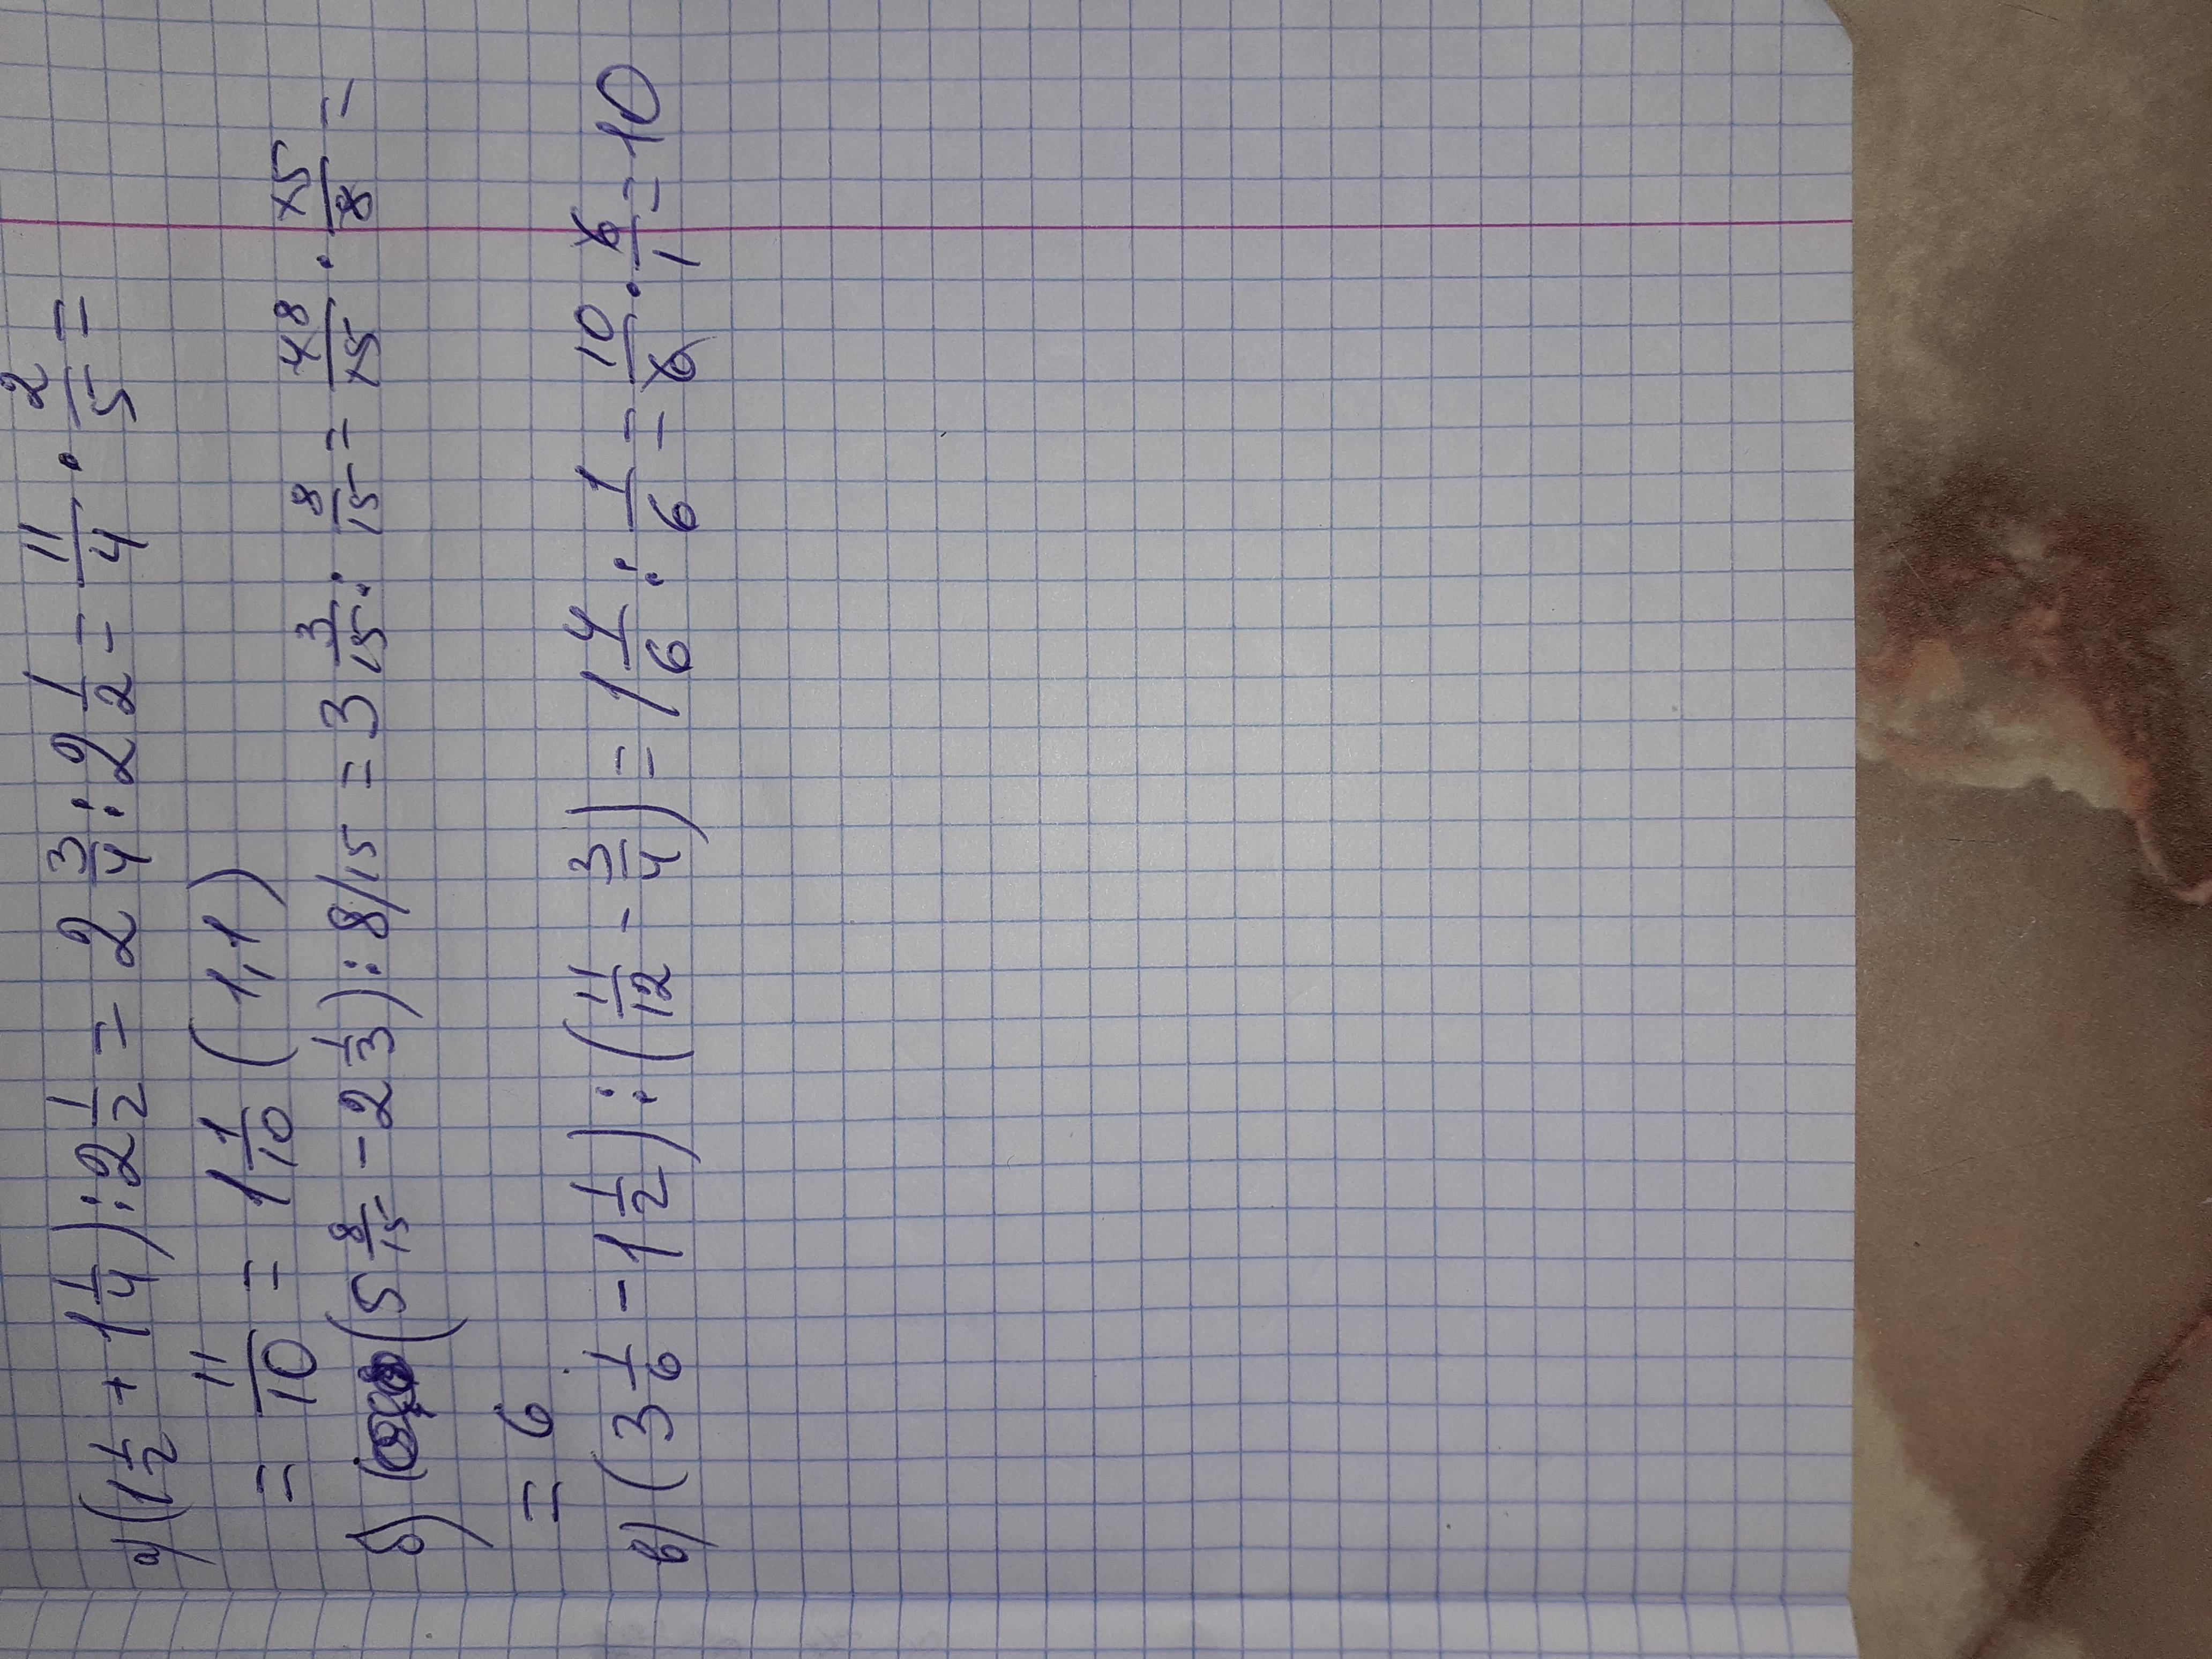 а) (1 1/2 + 1 1/4) : 2 1/2 = 2 3/4 : 2 1/2 = 11/4 · 2/5 =
= 11/10 = 1 1/10 (1,1)
б) (5 8/15 - 2 1/3) : 8/15 = 3 3/15 : 8/15 = 48/15 · 15/8 =
= 6
в) (3 1/6 - 1 1/2) : (11/12 - 3/4) = 1 4/6 : 1/6 = 10/6 · 6/1 = 10